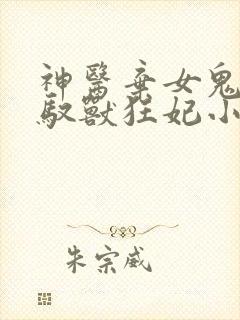 神醫棄女鬼
馭獸狂妃小
朱宗威